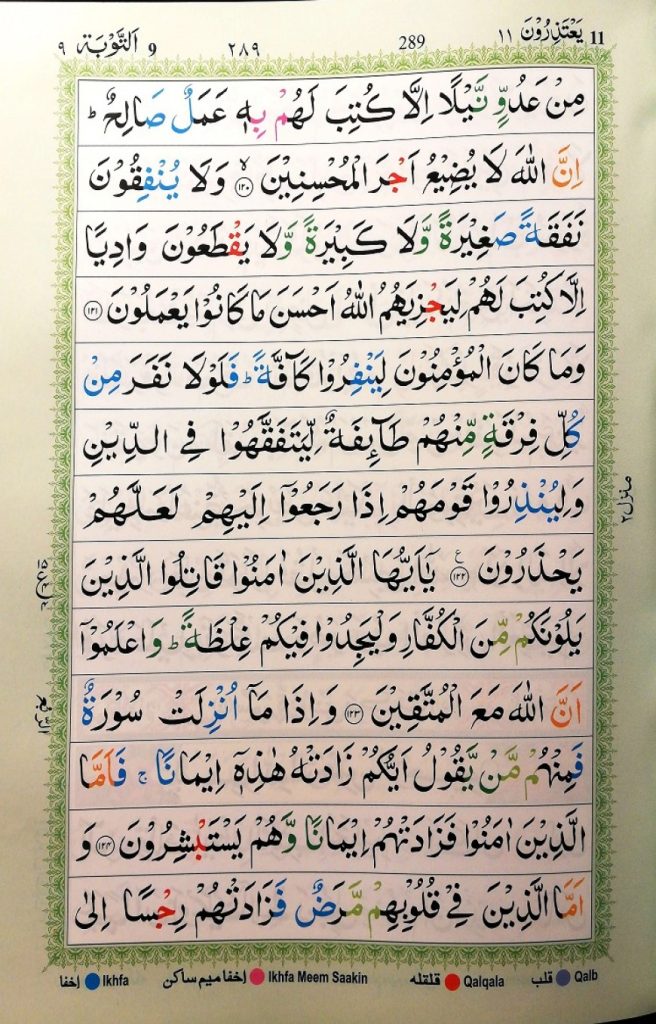 11 يَعْتَذِرُوْنَ ١١ 289 ٢٨٩ 9 اَلتَّوْبَة ٩
مِنْ عَدُوٍّ نَّيْلًا اِلَّا كُتِبَ لَهُمْ بِهٖ عَمَلٌ صَالِحٌ ؕ
اِنَّ اللّٰهَ لَا يُضِيْعُ اَجْرَ الْمُحْسِنِيْنَ ۙ‏﴿۱۲۰﴾ وَلَا يُنْفِقُوْنَ
نَفَقَةً صَغِيْرَةً وَّلَا كَبِيْرَةً وَّلَا يَقْطَعُوْنَ وَادِيًا
اِلَّا كُتِبَ لَهُمْ لِيَجْزِيَهُمُ اللّٰهُ اَحْسَنَ مَا كَانُوْا يَعْمَلُوْنَ ﴿۱۲۱﴾
وَمَا كَانَ الْمُؤْمِنُوْنَ لِيَنْفِرُوْا كَآفَّةً ؕ فَلَوْلَا نَفَرَ مِنْ
كُلِّ فِرْقَةٍ مِّنْهُمْ طَآئِفَةٌ لِّيَتَفَقَّهُوْا فِي الدِّيْنِ
وَلِيُنْذِرُوْا قَوْمَهُمْ اِذَا رَجَعُوْٓا اِلَيْهِمْ لَعَلَّهُمْ
يَحْذَرُوْنَ ﴿۱۲۲﴾ ع يٰٓاَيُّهَا الَّذِيْنَ اٰمَنُوْا قَاتِلُوا الَّذِيْنَ
يَلُوْنَكُمْ مِّنَ الْكُفَّارِ وَلْيَجِدُوْا فِيْكُمْ غِلْظَةً ؕ وَاعْلَمُوْٓا
اَنَّ اللّٰهَ مَعَ الْمُتَّقِيْنَ ﴿۱۲۳﴾ وَاِذَا مَآ اُنْزِلَتْ سُوْرَةٌ
فَمِنْهُمْ مَّنْ يَّقُوْلُ اَيُّكُمْ زَادَتْهُ هٰذِهٖٓ اِيْمَانًا ۚ فَاَمَّا
الَّذِيْنَ اٰمَنُوْا فَزَادَتْهُمْ اِيْمَانًا وَّهُمْ يَسْتَبْشِرُوْنَ ﴿۱۲۴﴾ وَ
اَمَّا الَّذِيْنَ فِيْ قُلُوْبِهِمْ مَّرَضٌ فَزَادَتْهُمْ رِجْسًا اِلٰى
منزل ٢
الربع
Qalb قلب Qalqala قلقله Ikhfa Meem Saakin إخفا ميم ساكن Ikhfa إخفا